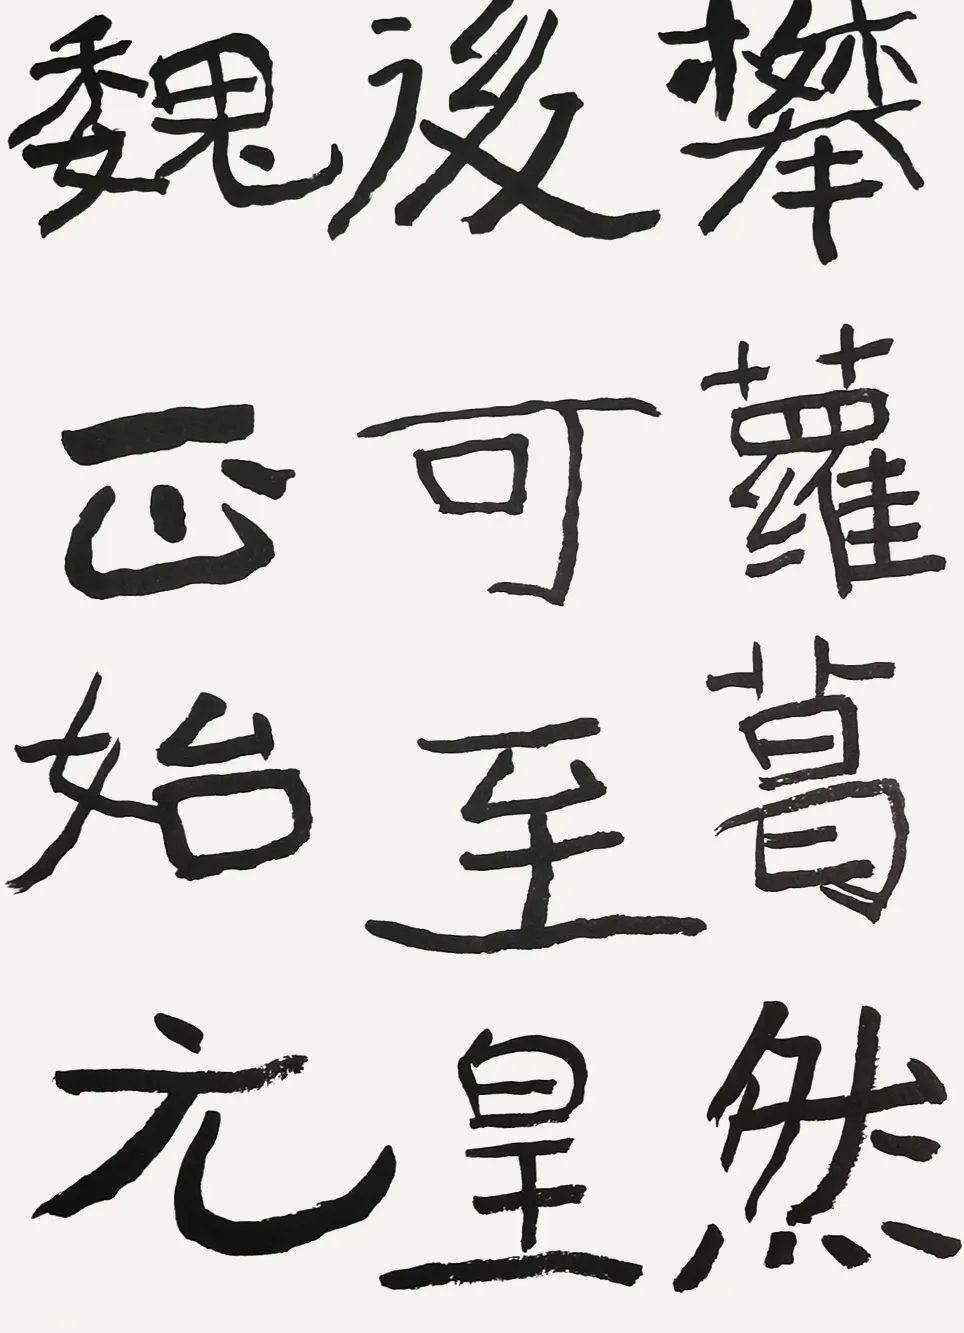 攀蘿葛然
後可至皇
魏正始元